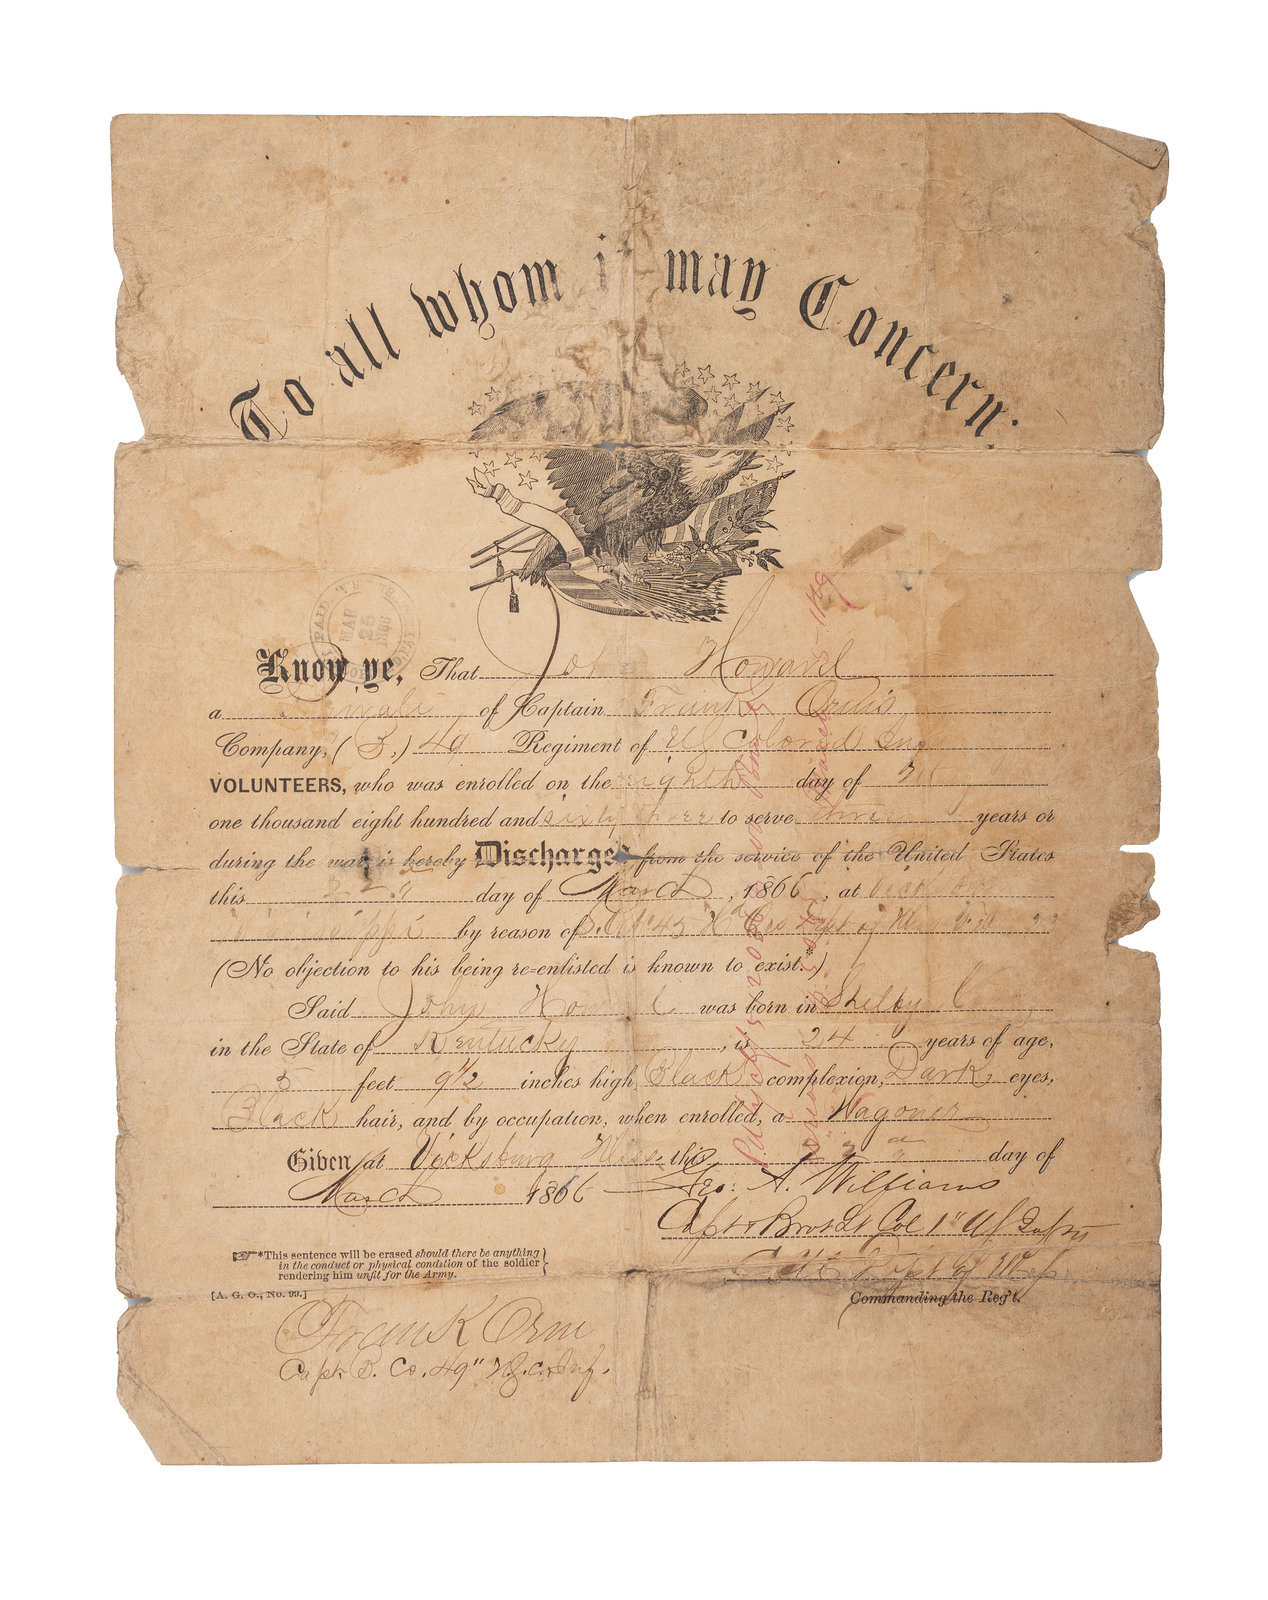 To all whom it may Concern:
PAID
MAR
26
1866
Know ye, That John Howard
a Private of Captain Frank
Company, (D.) 49 Regiment of US Colored Inf
VOLUNTEERS, who was enrolled on the eighth day of
one thousand eight hundred and sixty three to serve three years or
during the war is hereby Discharged from the service of the United States
this 22d day of March, 1866, at Vicksburg
Mississippi by reason of S.O. No 45 Hd Qrs Dept of Miss
(No objection to his being re-enlisted is known to exist.*)
Said John Howard was born in Shelby County
in the State of Kentucky, is 24 years of age,
5 feet 9 1/2 inches high, Black complexion, Dark eyes,
Black hair, and by occupation, when enrolled, a Wagoner
Given at Vicksburg Miss. this 22d day of
March 1866 Geo: A. Williams
Capt & Brvt Lt Col 1" US Infty
Dept of Miss
Commanding the Reg't.
*This sentence will be erased should there be anything
in the conduct or physical condition of the soldier
rendering him unfit for the Army.
[A. G. O., No. 99.]
Frank Orm
Capt. D. Co. 49" U.S.C. Inf.